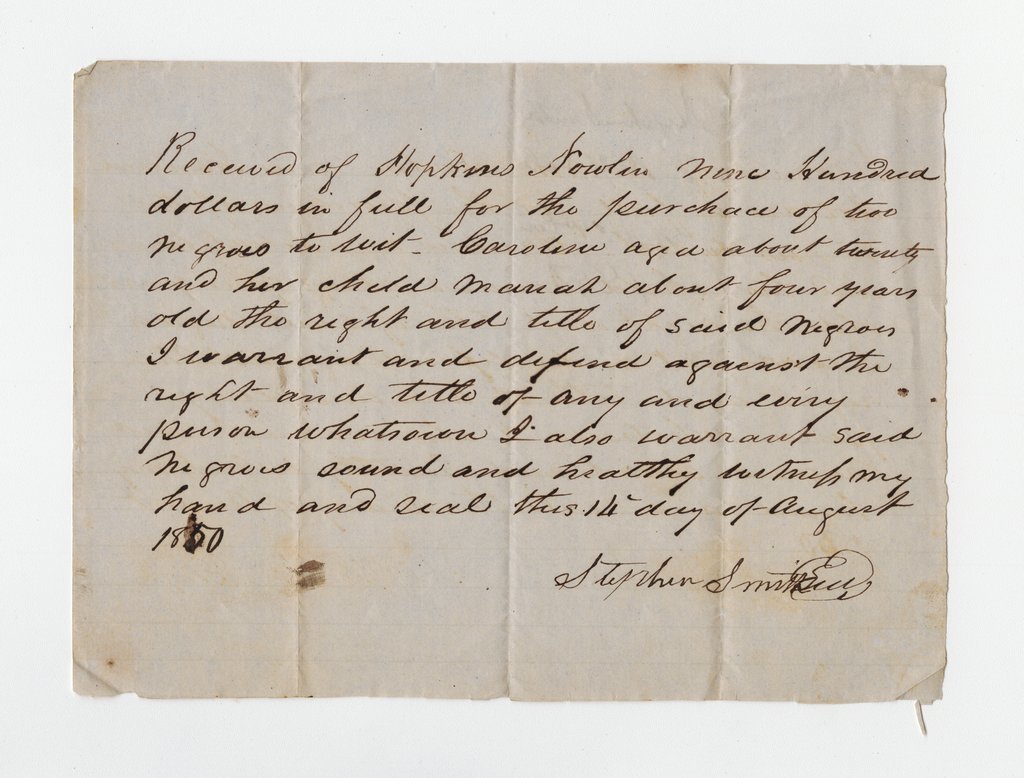 Received of Hopkins Nowlin nine Hundred
dollars in full for the purchace of two
negroes to wit - Caroline aged about twenty
and her child Mariah about four years
old the right and title of said negroes
I warrant and defend against the
right and title of any and every
person whatsoever I also warrant said
negroes sound and healthy witness my
hand and seal this 14 day of August
1850
Stephen Smith Seal